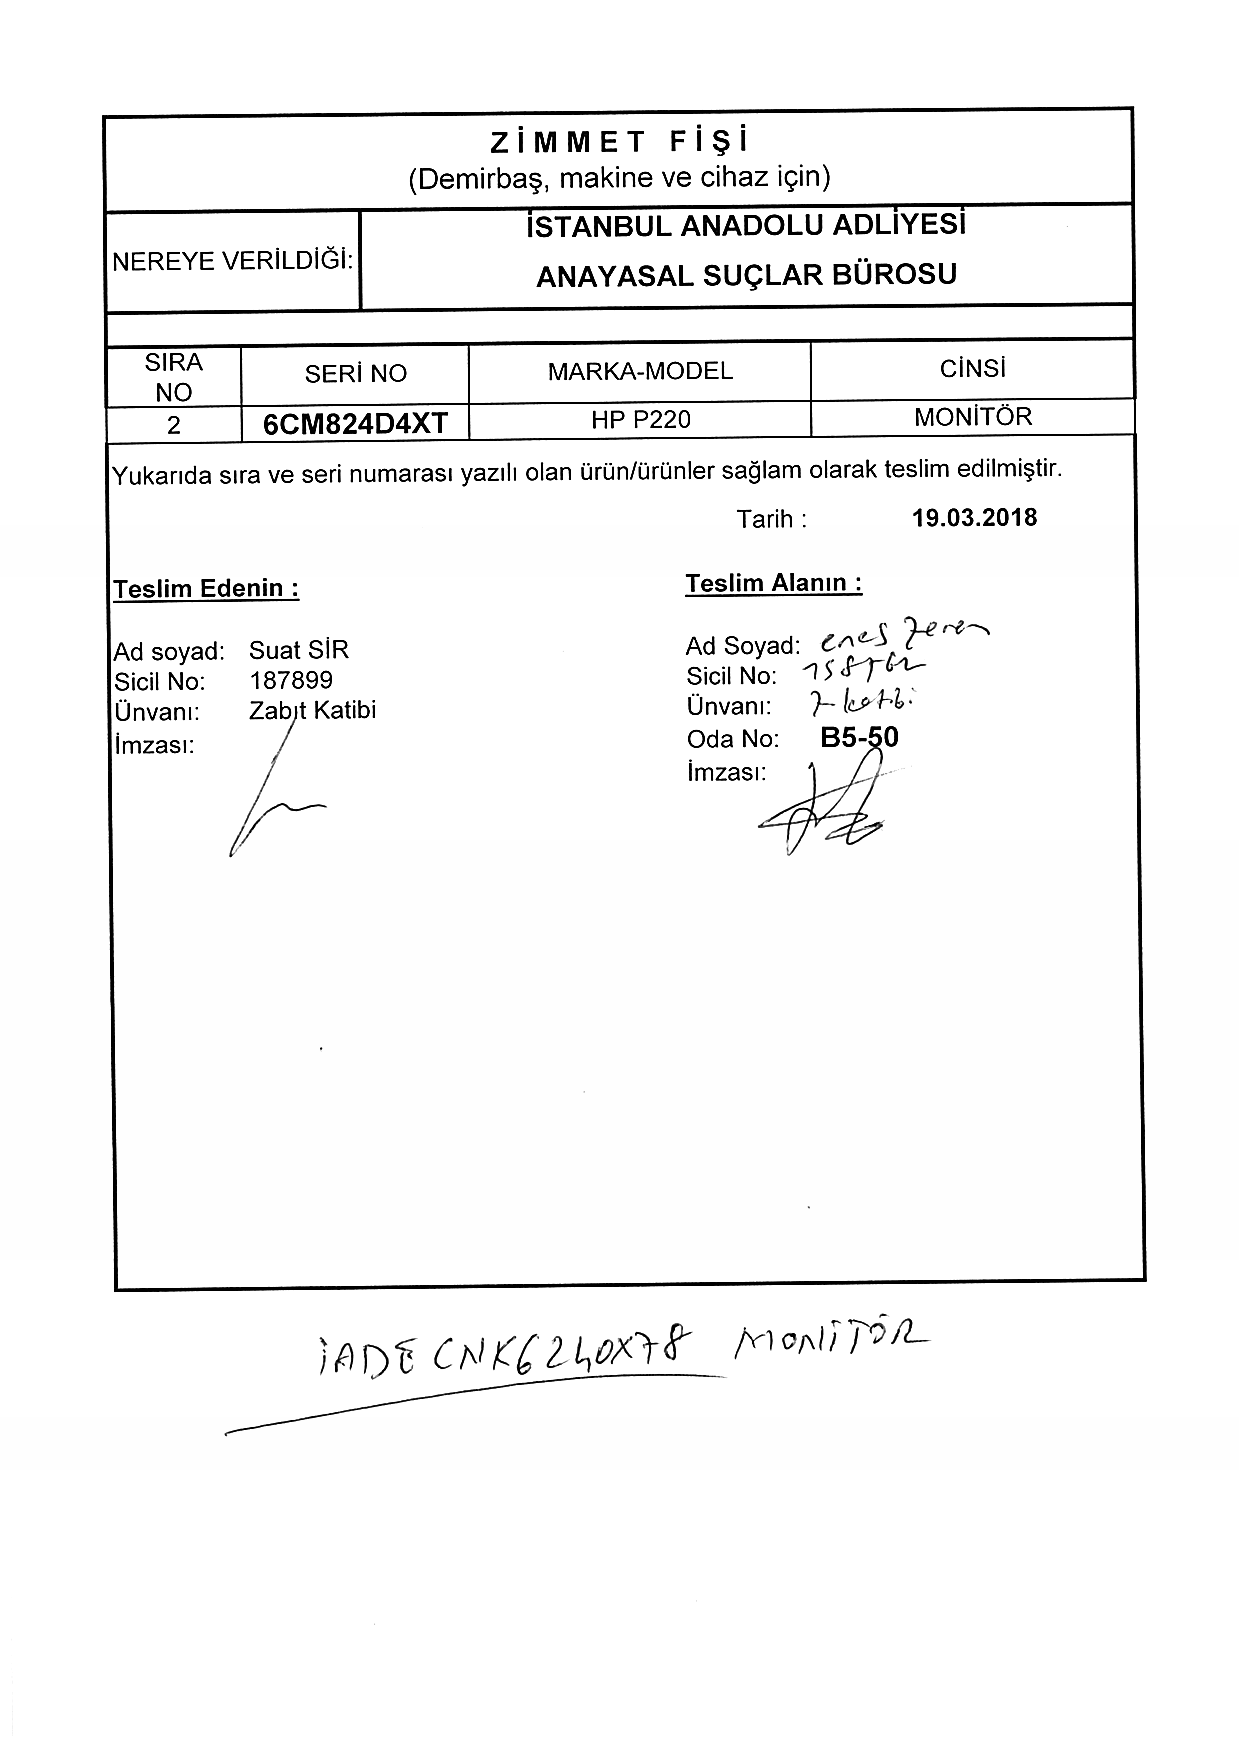 ZİMMET FİŞİ
(Demirbaş, makine ve cihaz için)
NEREYE VERİLDİĞİ:
İSTANBUL ANADOLU ADLİYESİ
ANAYASAL SUÇLAR BÜROSU
SIRA NO SERİ NO MARKA-MODEL CİNSİ
2 6CM824D4XT HP P220 MONİTÖR
Yukarıda sıra ve seri numarası yazılı olan ürün/ürünler sağlam olarak teslim edilmiştir.
Tarih : 19.03.2018
Teslim Edenin :
Ad soyad: Suat SİR
Sicil No: 187899
Ünvanı: Zabıt Katibi
İmzası:
Teslim Alanın :
Ad Soyad: enes
Sicil No:
Ünvanı: Z- katibi
Oda No: B5-50
İmzası:
İADE CNK6240X78 MONİTÖR